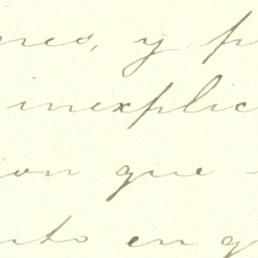 nes, y p
inexplic
ion que
nto en q